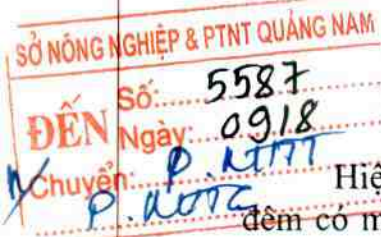 SỞ NÔNG NGHIỆP & PTNT QUẢNG NAM
ĐẾN
Số: 5587
Ngày: 0918
Chuyển: P.
P.
Hiệ
đêm có m